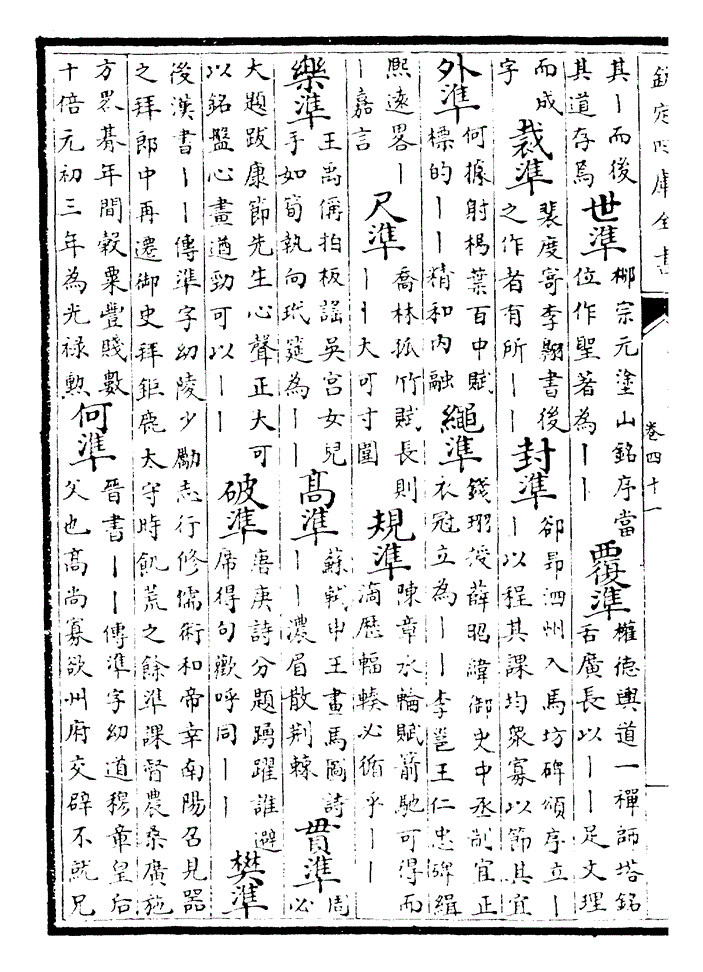 欽定四庫全書
卷四十一
其丨而後
其道存焉
世準
栁宗元塗山銘序當
位作聖著為丨丨
覆準
權德輿道一禪師塔銘
舌廣長以丨丨足文理
而成
字
裁準
裴度寄李翺書後
之作者有所丨丨
封準
郤昂泗州入馬坊碑頌序立丨
丨以程其課均衆寡以節其宜
外準
何據射楊葉百中賦
標的丨丨精和内融
繩準
錢珝授薛昭緯御史中丞制宜正
衣冠立為丨丨李邕王仁忠碑緝
熙遠畧丨
丨嘉言
尺準
喬林孤竹賦長則
丨丨大可寸圍
規準
陳章水輪賦箭馳可得而
淘歴輻輳必循乎丨丨
樂準
王禹偁拍板謡吳宫女兒
手如筍執向玳筵為丨丨
高準
蘇軾申王畫馬圖詩
丨丨濃眉散荆棘
貫準
周
必
大題跋康節先生心聲正大可
以銘盤心畫遒勁可以丨丨
破準
唐庚詩分題踴躍誰避
席得句歡呼同丨丨
樊準
後漢書丨丨傳準字幼陵少勵志行修儒術和帝幸南陽召見器
之拜郎中再遷御史拜鉅鹿太守時飢荒之餘準課督農桑廣施
方畧朞年間榖粟豐賤數
十倍元初三年為光禄勲
何準
晉書丨丨傳準字幼道穆章皇后
父也高尚寡欲州府交辟不就兄